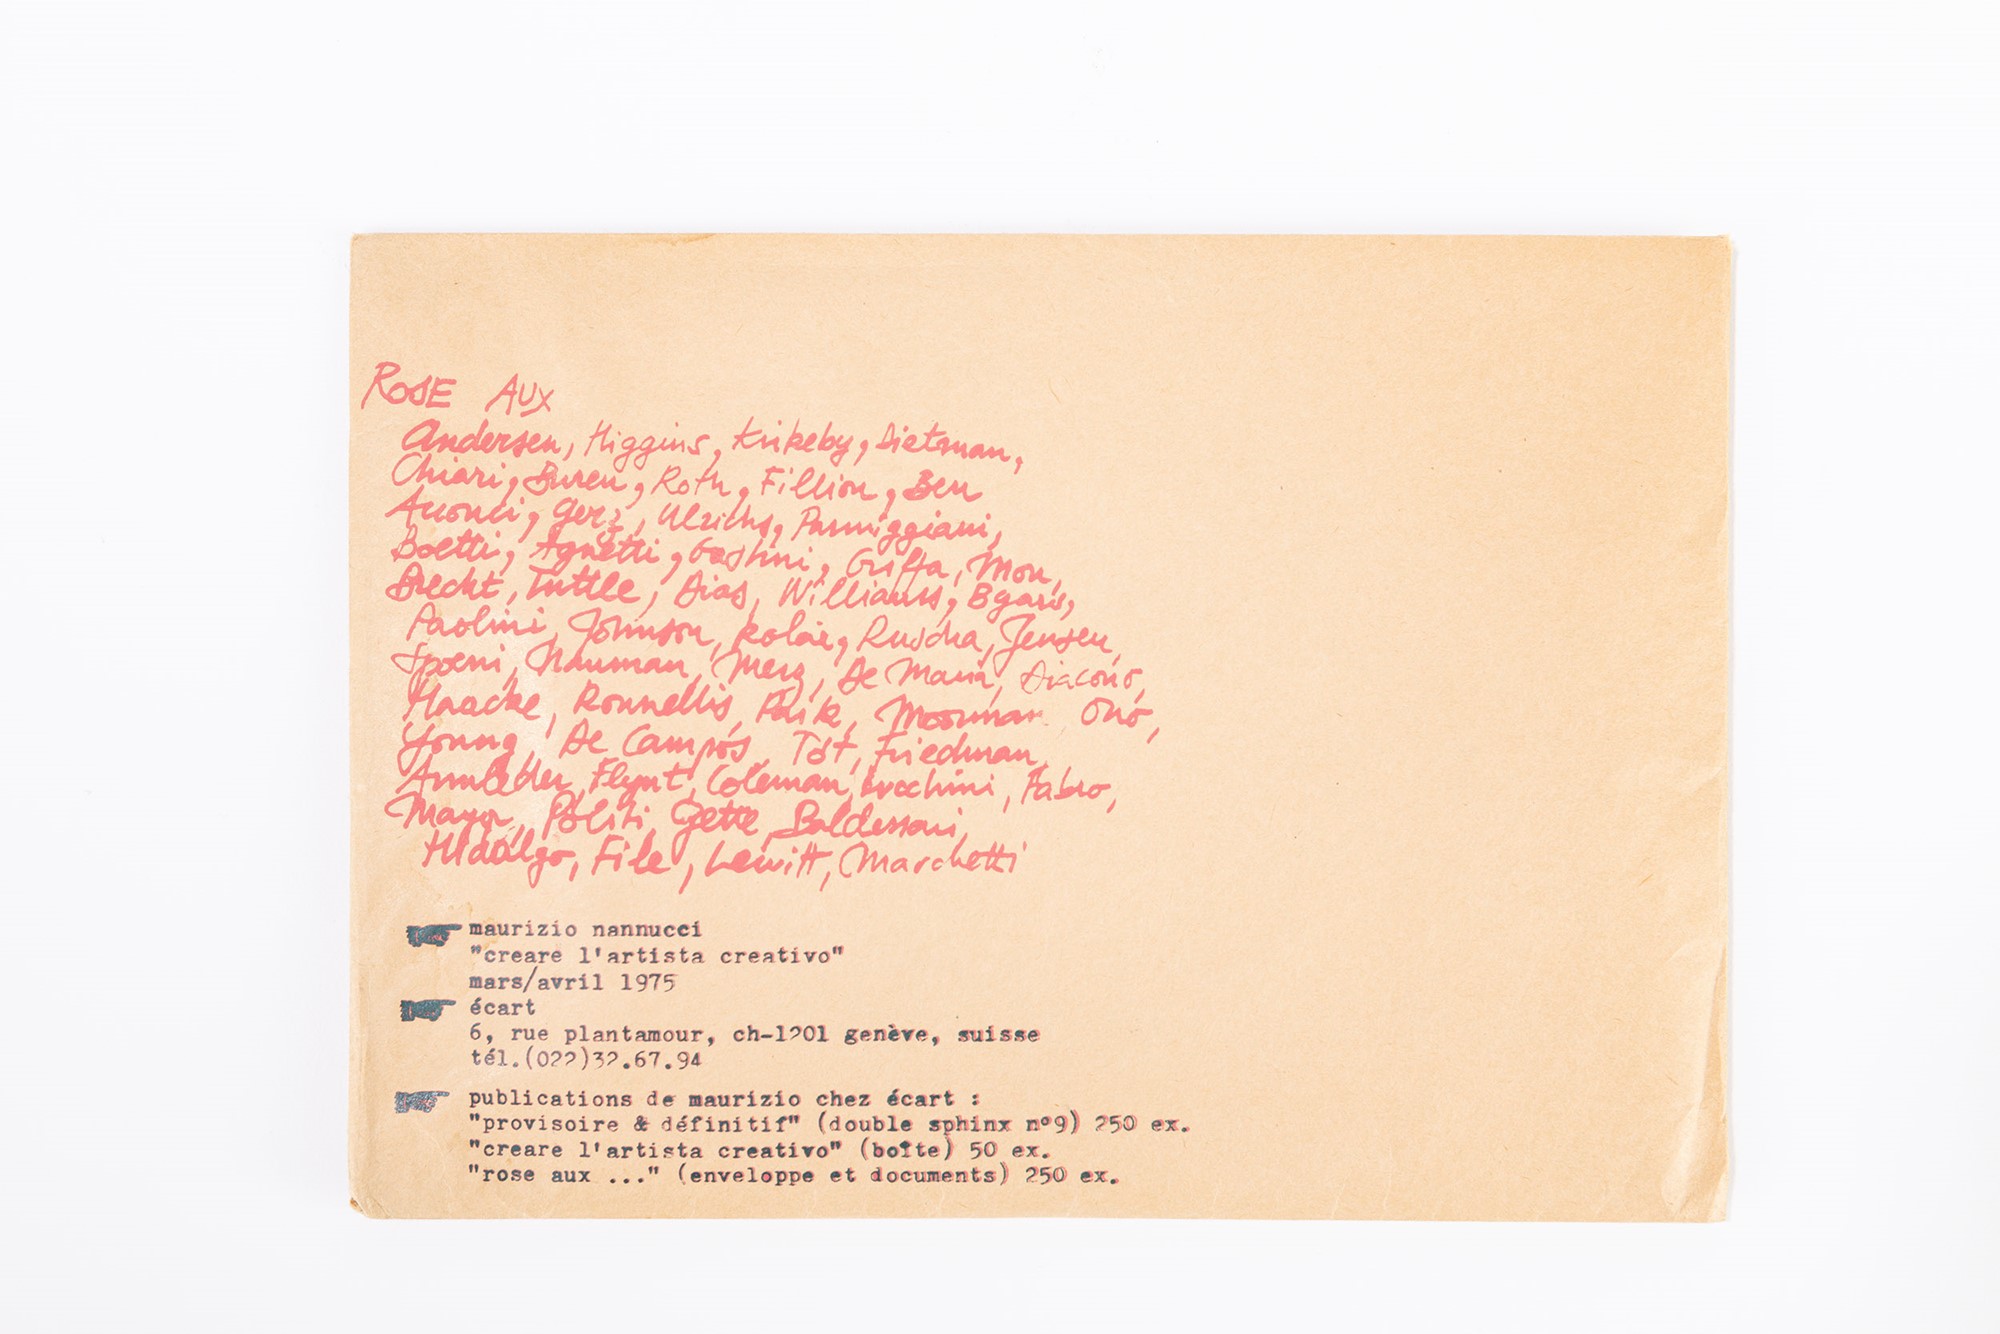 ROSE AUX
Andersen, Higgins, Kirkeby, Dietman,
Chiari, Buren, Roth, Fillion, Ben
Acconci, Gerz, Ulrichs, Parmiggiani,
Boetti, Agnetti, Griffa, Mon,
Brecht, Tuttle, Dias, Williams, Byars,
Paolini, Johnson, Kolár, Ruscha, Jensen,
Spoeni, Nauman, Merz, De Maria, Diacono,
Haacke, Kounellis, Paik, Moorman Ono,
Young, De Campos, Tót, Friedman,
Armleder, Flynt, Coleman, Fabro,
Mayor, Politi, Gette, Baldessari,
Hidalgo, File, Lewitt, Marchetti
maurizio nannucci
"creare l'artista creativo"
mars/avril 1975
écart
6, rue plantamour, ch-1201 genève, suisse
tél.(022)32.67.94
publications de maurizio chez écart :
"provisoire & définitif" (double sphinx n°9) 250 ex.
"creare l'artista creativo" (boîte) 50 ex.
"rose aux ..." (enveloppe et documents) 250 ex.